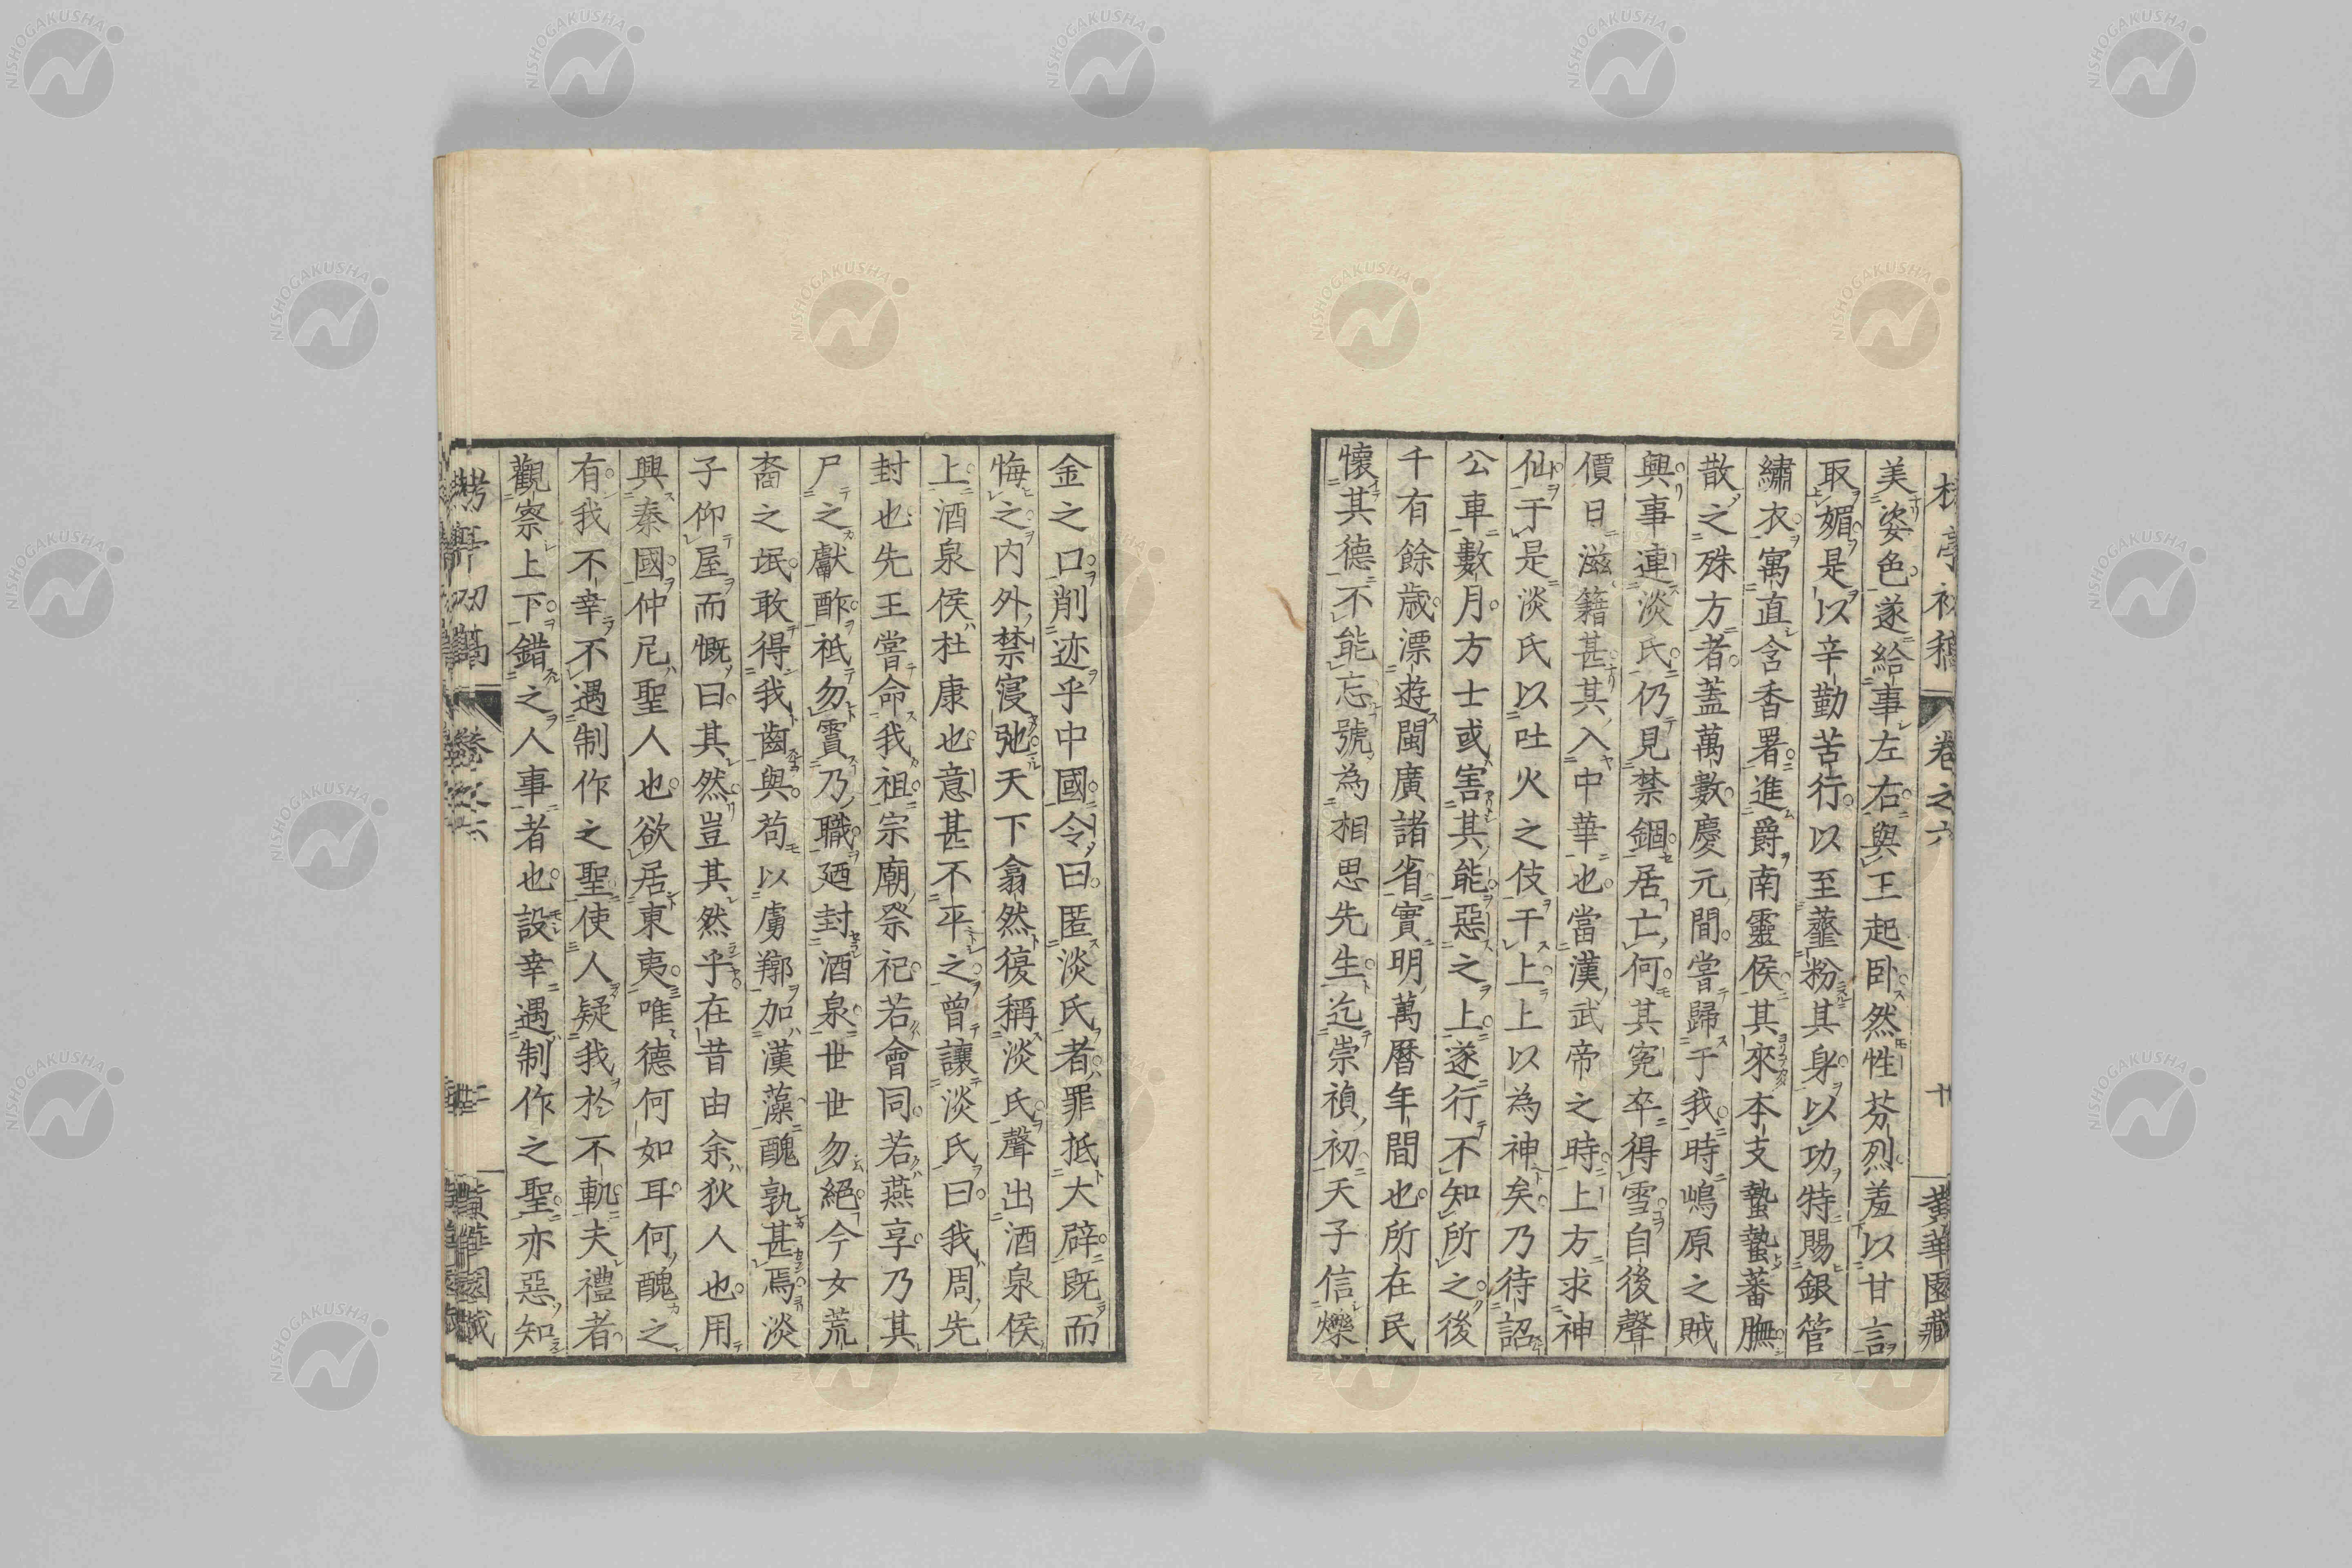 美姿色遂給事左右與王起臥然性芬烈羞以甘言
取媚是以辛勤苦行以至虀粉其身以功特賜銀管
繡衣寓直含香署進爵南靈侯其來本支蟄蟄蕃膴
散之殊方者蓋萬數慶元間嘗歸于我時嶋原之賊
興事連淡氏仍見禁錮居亡何其寃卒得雪自後聲
價日滋籍甚其入中華也當漢武帝之時上方求神
仙于是淡氏以吐火之伎干上上以為神矣乃待詔
公車數月方士或害其能惡之上遂行不知所之後
千有餘歳漂遊閩廣諸省實明萬暦年間也所在民
懷其德不能忘號為相思先生迄崇禎初天子信爍
金之口削迹乎中國令曰匿淡氏者罪抵大辟既而
悔之内外禁寖弛天下翕然復稱淡氏聲出酒泉侯
上酒泉侯杜康也意甚不平之曾讓淡氏曰我周先
封也先王嘗命我祖宗廟祭祀若會同若燕享乃其
尸之獻酢祗勿賈乃職廼封酒泉世世勿絕今女荒
裔之氓敢得我齒與苟以虜鄉加漢藻醜孰甚焉淡
子仰屋而慨曰其然豈其然乎在昔由余狄人也用
興秦國仲尼聖人也欲居東夷唯德何如耳何醜之
有我不幸不遇制作之聖使人疑我於不軌夫禮者
觀察上下錯之人事者也設幸遇制作之聖亦惡知
卷之六
黄華園藏
NISHOGAKUSHA